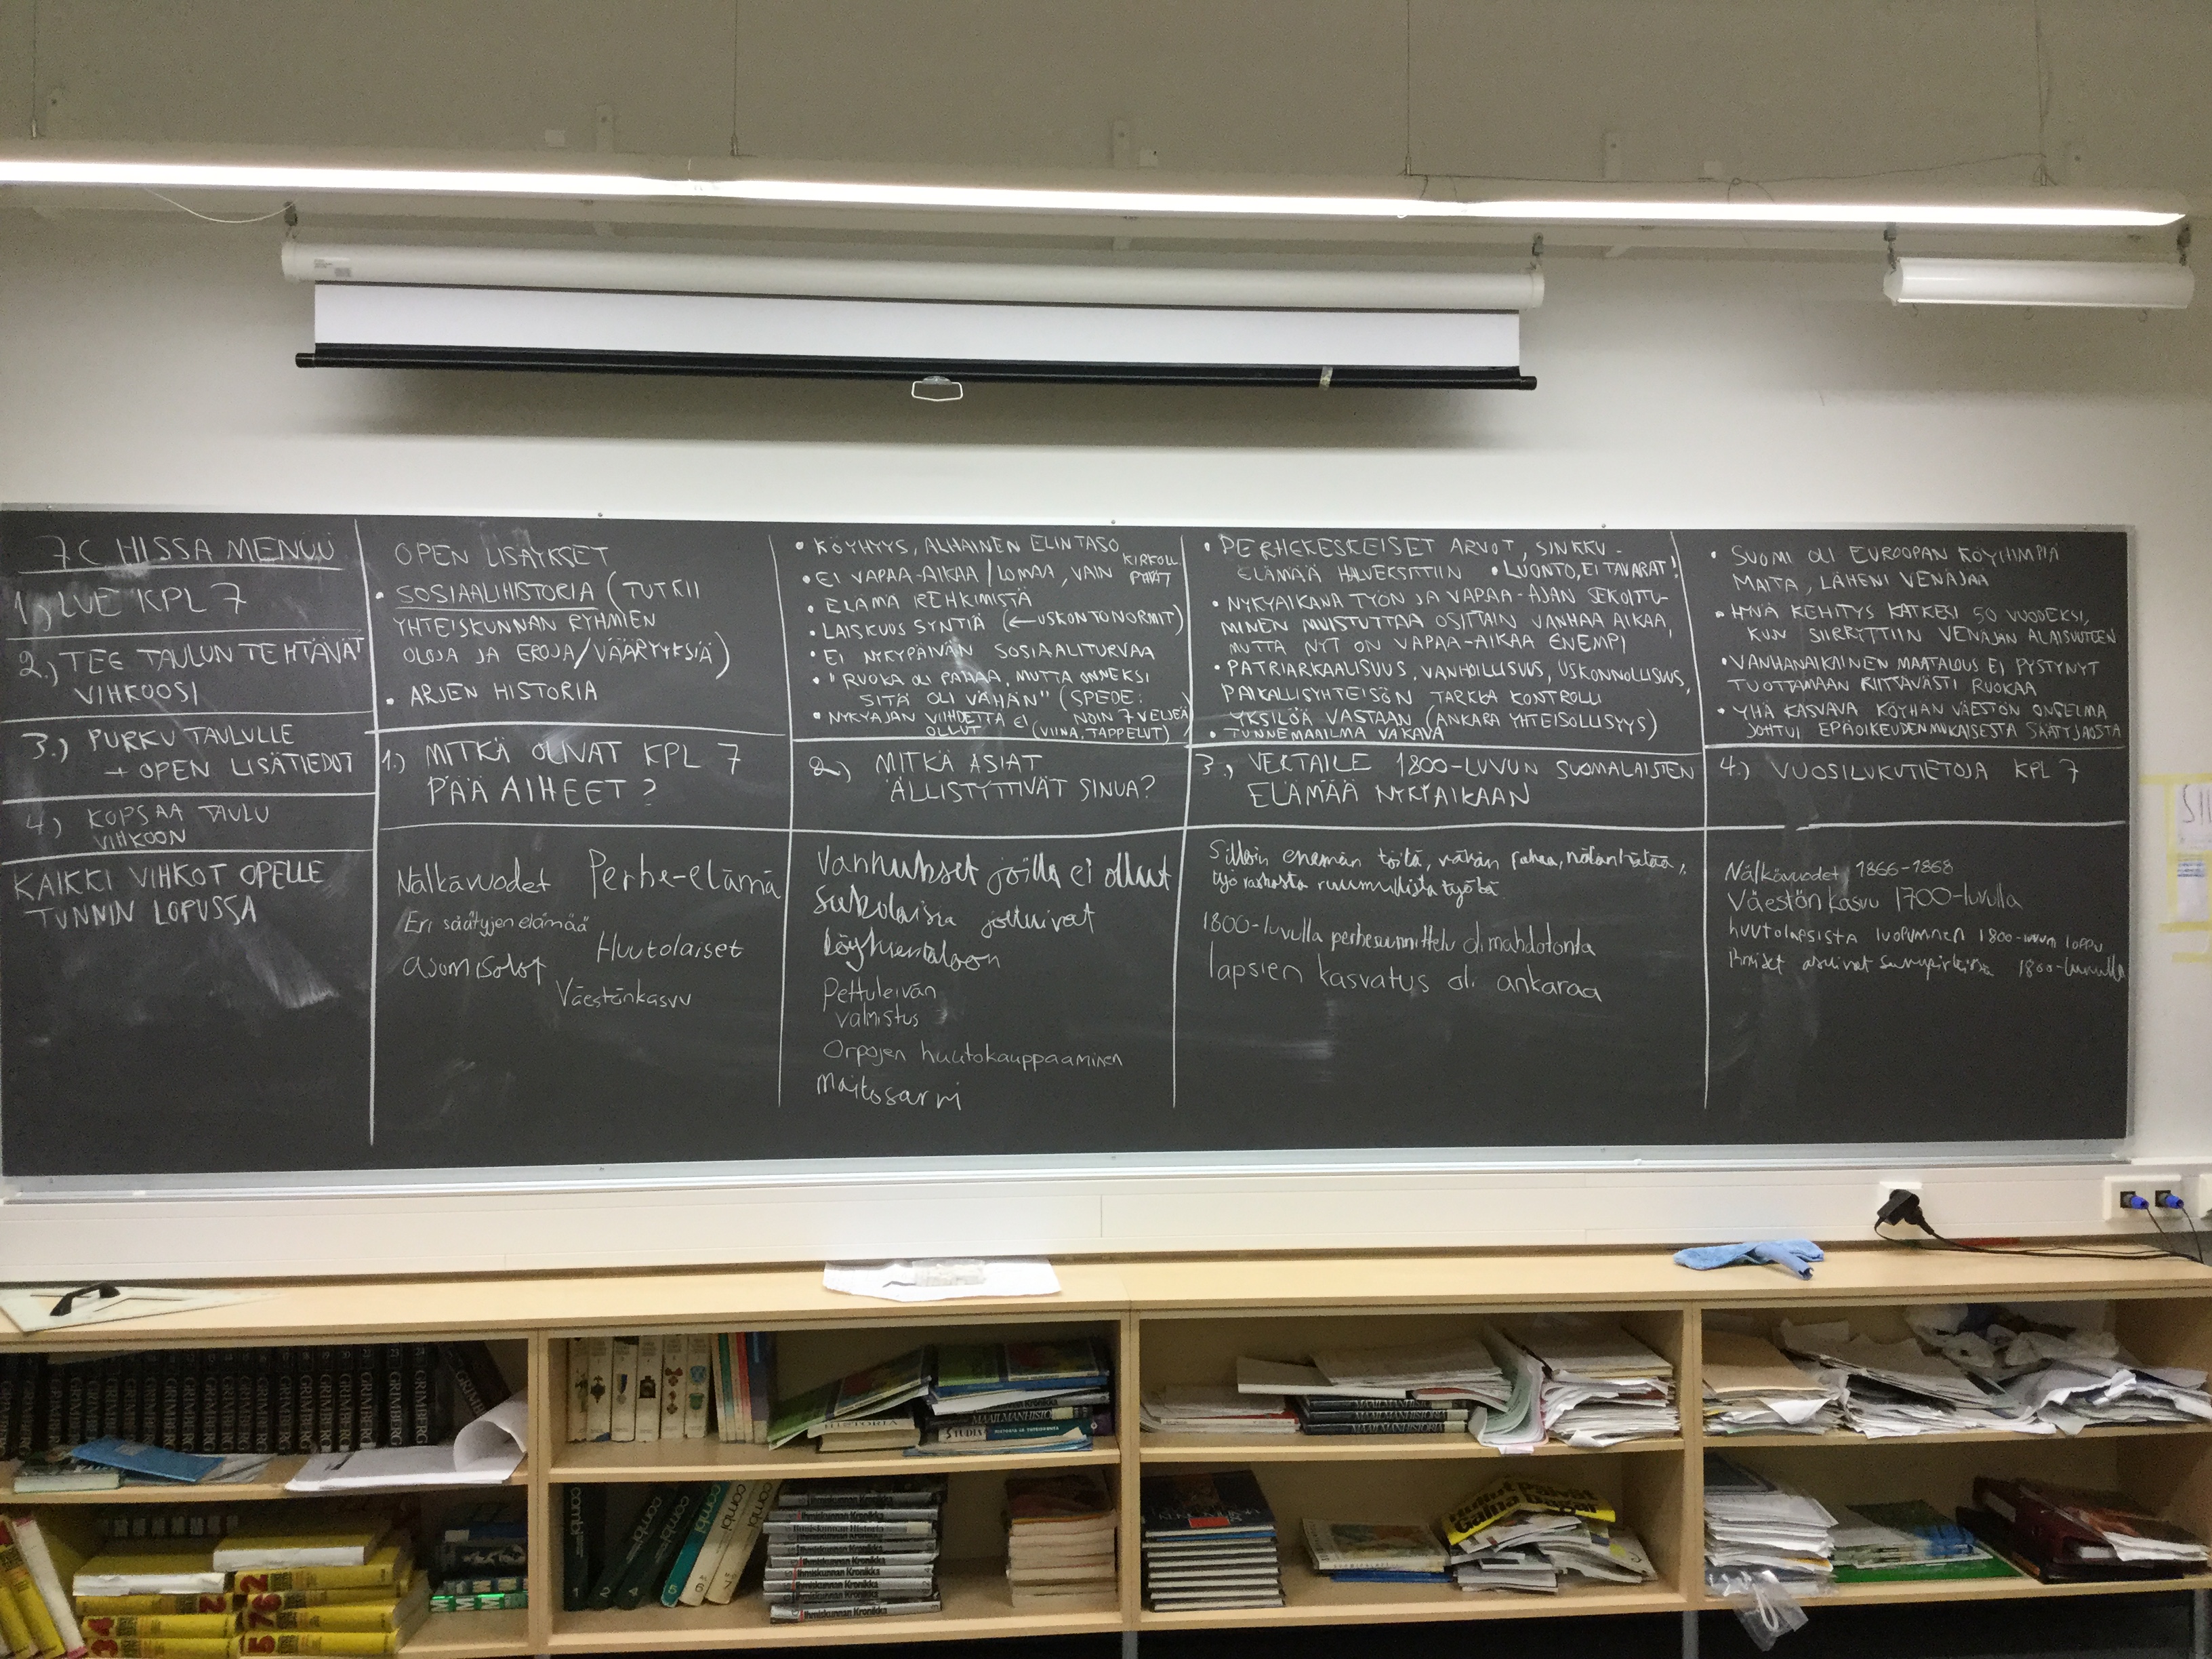 7C HISSA MENUU
1.) LUE KPL 7
2.) TEE TAULUN TEHTÄVÄT
VIHKOOSI
3.) PURKU TAULULLE
→ OPEN LISÄTIEDOT
4.) KOPSAA TAULU
VIHKOON
KAIKKI VIHKOT OPELLE
TUNNIN LOPUSSA
OPEN LISÄYKSET
• SOSIAALIHISTORIA (TUTKII
YHTEISKUNNAN RYHMIEN
OLOJA JA EROJA/VÄÄRYYKSIÄ)
• ARJEN HISTORIA
1.) MITKÄ OLIVAT KPL 7
PÄÄAIHEET?
Nälkävuodet
Perhe-elämä
Eri säätyjen elämää
Huutolaiset
asumisolot
Väestönkasvu
• KÖYHYYS, ALHAINEN ELINTASO
• EI VAPAA-AIKAA/LOMAA, VAIN KIRKOLL.
PYHÄT
• ELÄMÄ REHKIMISTÄ
• LAISKUUS SYNTIÄ (← USKONTONORMIT)
• EI NYKYPÄIVÄN SOSIAALITURVAA
• "RUOKA OLI PAHAA, MUTTA ONNEKSI
SITÄ OLI VÄHÄN" (SPEDE:
NOIN 7 VELJEÄ)
• NYKYAJAN VIIHDETTÄ EI
OLLUT (VIINA, TAPPELUT)
2.) MITKÄ ASIAT
ÄLLISTYTTIVÄT SINUA?
Vanhukset joilla ei ollut
sukulaisia joutuivat
köyhäintaloon
Pettuleivän
valmistus
Orpojen huutokauppaaminen
Maitosarvi
• PERHEKESKEISET ARVOT, SINKKU-
ELÄMÄÄ HALVEKSITTIIN • LUONTO, EI TAVARAT!
• NYKYAIKANA TYÖN JA VAPAA-AJAN SEKOITU-
MINEN MUISTUTTAA OSITTAIN VANHAA AIKAA,
MUTTA NYT ON VAPAA-AIKAA ENEMPI
• PATRIARKAALISUUS, VANHOILLISUUS, USKONNOLLISUUS,
PAIKALLISYHTEISÖN TARKKA KONTROLLI
YKSILÖÄ VASTAAN (ANKARA YHTEISÖLLISYYS)
• TUNNEMAAILMA VAKAVA
3.) VERTAILE 1800-LUVUN SUOMALAISTEN
ELÄMÄÄ NYKYAIKAAN
Silloin enemän töitä, vähän rahaa, nälänhätää,
työ raskasta ruumiillista työtä.
1800-luvulla perhesunnittelu oli mahdotonta
lapsien kasvatus oli ankaraa
• SUOMI OLI EUROOPAN KÖYHIMPIÄ
MAITA, LÄHENI VENÄJÄÄ
• HYVÄ KEHITYS KATKESI 50 VUODEKSI,
KUN SIIRRYTTIIN VENÄJÄN ALAISUUTEEN
• VANHANAIKAINEN MAATALOUS EI PYSTYNYT
TUOTTAMAAN RIITTÄVÄSTI RUOKAA
• YHÄ KASVAVA KÖYHÄN VÄESTÖN ONGELMA
JOHTUI EPÄOIKEUDENMUKAISESTA SÄÄTYJAOSTA
4.) VUOSILUKUTIETOJA KPL 7
Nälkävuodet 1866-1868
Väestön kasvu 1700-luvulla
huutolapsista luopuminen 1800-luvun loppu
ihmiset asuivat 1800-luvulla
GRIMBERG
HISTORIA
STUDIA
MAAILMANHISTORIA
MAAILMANHISTORIA
MAAILMANHISTORIA
combi
Ihmiskunnan Kronikka
Ihmiskunnan Historia
Ihmiskunnan Kronikka
Ihmiskunnan Kronikka
Ihmiskunnan Kronikka
Ihmiskunnan Kronikka
Ihmiskunnan Kronikka